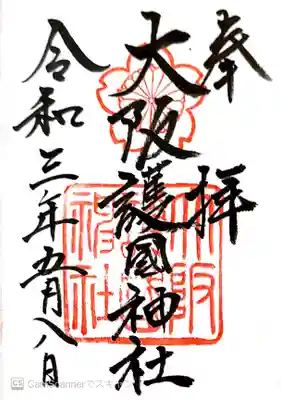 奉拝
大阪護國神社
令和三年五月八日
CS CamScannerでスキャン